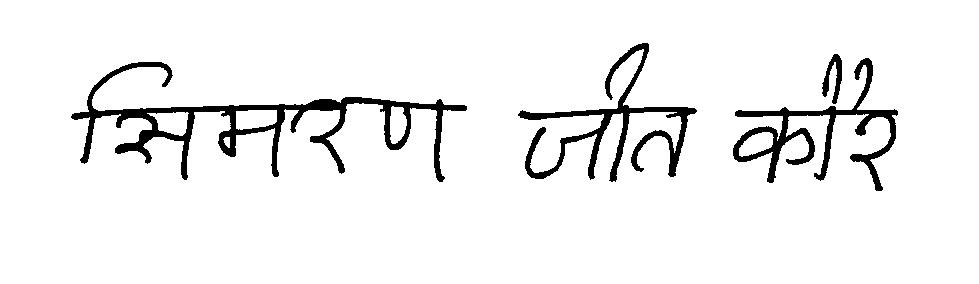 सिमरण जोत कौर